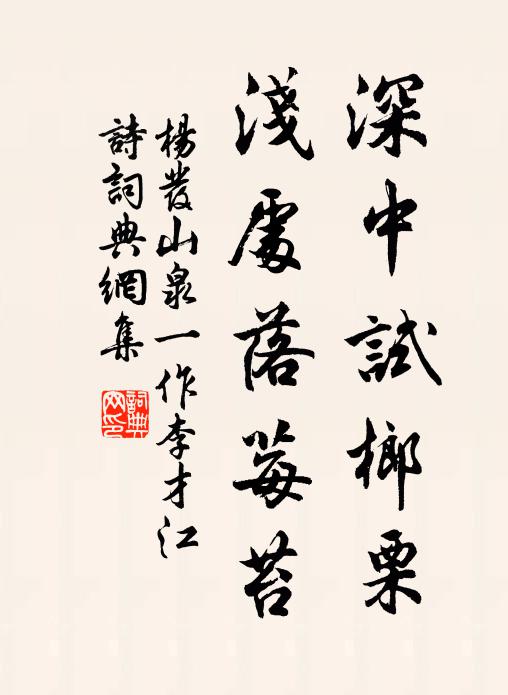 深中試榔栗
淺處落莓苔
楊發山泉一作李才江
詩詞典網集
詞典网印